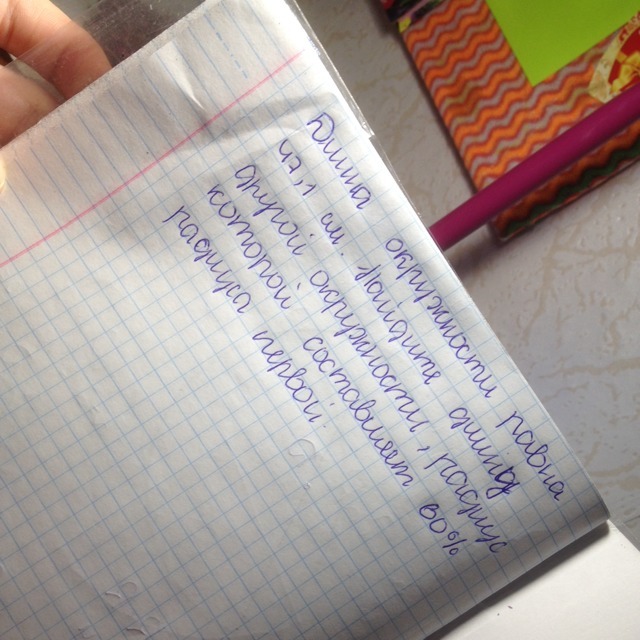 Длина окружности равна
4,5 м. Найдите длину
другой окружности, радиус
которой составляет 60%
радиуса первой